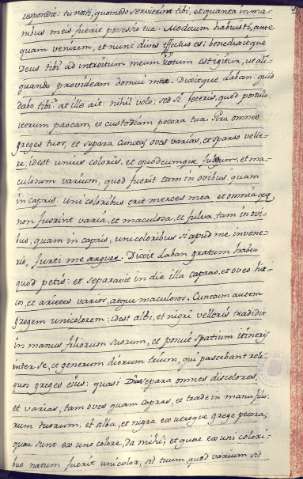 respondit: tu nosti, quomodo servierim tibi, et quanta in ma-
nibus meis fuerit possessio tua. Modicum habuisti, ante
quam venirem, et nunc dives effectus es: benedixitque
Deus tibi ad introitum meum. iustum est igitur, ut ali-
quando provideam domui meæ. Dixitque Laban: quid
dabo tibi? at ille ait: nihil volo; sed si feceris, quod postulo,
iterum pascam, et custodiam pecora tua. Gira omnes
greges tuos, et separa cunctas oves varias, et sparso velle-
re, idest unius coloris, et quodcumque fuerit, et ma-
culosum varium, quod fuerit tam in ovibus, quam
in capris. Unicoloribus erit merces mea et omnia, quæ
non fuerint varia, et maculosa, et fulva tam in ovi-
bus, quam in capris, unicoloribus si apud me invene-
ris, furti me argues. Dixit Laban gratum habeo
quod petis: et separavit in die illa capras, et oves hir-
cos, et arietes varios, atque maculosos. Cunctum autem
gregem unicolorem: idest albi, et nigri velleris tradidit
in manus filiorum suorum, et posuit spatium itineris
inter se, et generum dierum trium, qui pascebat reli-
quos greges eius: quasi separa omnes discolores,
et varias, tam oves quam capras, et trade in manu filio-
rum tuorum, et alba, et nigra ex utroque grege pecora,
quæ sunt ex uno colore, da mihi; et quæ ex uni colori-
bus natum fuerit unicolor, sit tuum, quod varium sit